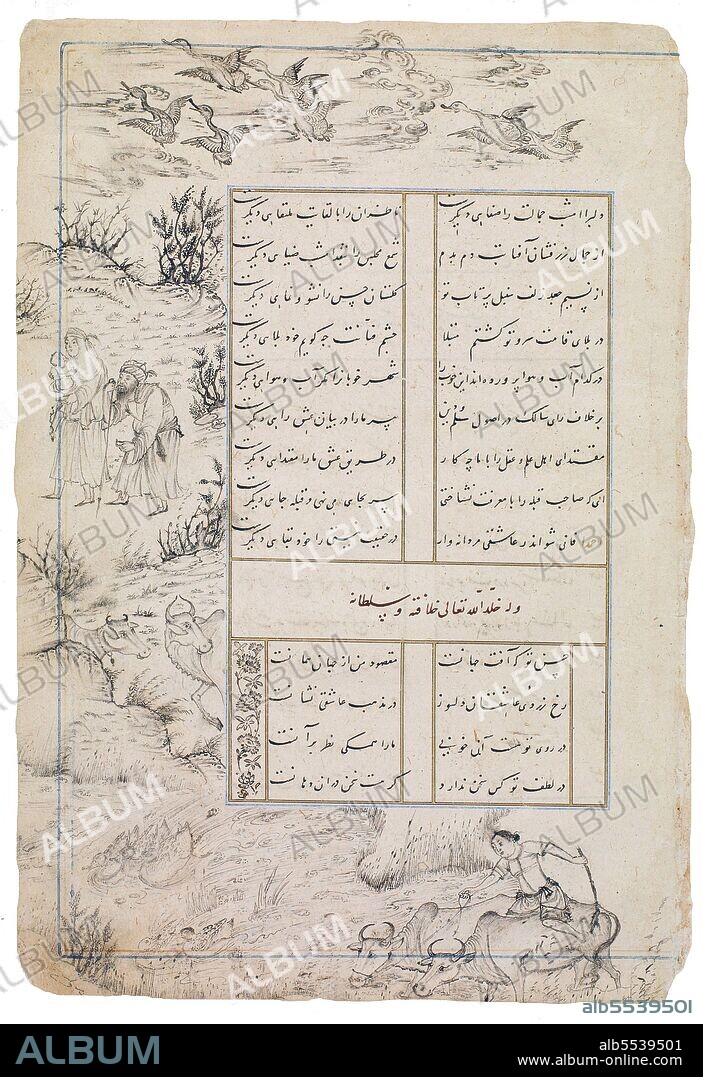 دلبرا امشب جمالت را صفایی دیگرست
ناظران را با لقایت ملتقایی دیگرست
از جمال زرفشان آفتاب دم بدم
شمع مجلس را امشب ضیایی دیگرست
از نسیم جعد زلف سنبل پرتاب تو
گلستان حسن را نشو و نمایی دیگرست
در بلای قامت سرو تو گشتم مبتلا
چشم فتانت چه گویم خود بلایی دیگرست
در کدام آب و هوا پرورده اند این خوب را
شهر خوبانرا مگر آب و هوایی دیگرست
بر خلاف رای سالک در اصول علم و دین
پیر ما را در بیان عشق رایی دیگرست
مقتدای اهل علم و عقل را با ما چه کار
در طریق عشق ما را مقتدایی دیگرست
ای که صاحب قبله را با معرفت نشناختی
سر بجایی می نهی و قبله جایی دیگرست
فانی شو اندر عاشقی مردانه وار
در حقیقت را خود بقایی دیگرست
وله خلد الله تعالی خلافته و سلطانه
حسن تو گرفت جهانت
مقصود من از جهان همانت
رخ زردی عاشقان دلسوز
در مذهب عاشقی نشانت
در روی تو آبی خوبی
ما را همگی نظر بر آنت
در لطف تو کس سخن ندارد
گر هست سخن در آن دهانت
ALBUM
alb5539501
ALBUM
alb5539501
www.album-online.com